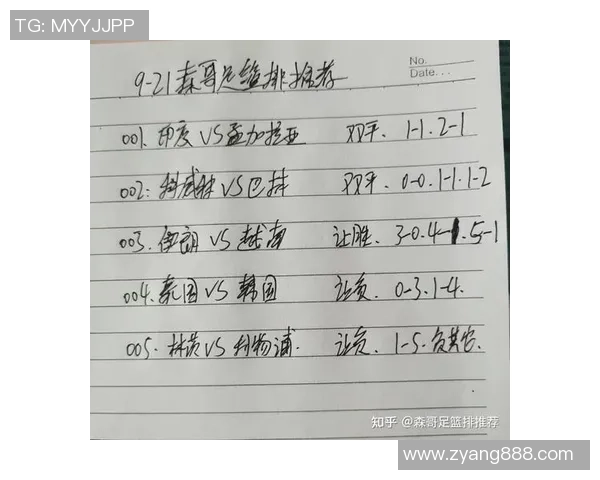 TG: MYYJJPP
No.
Date...
9-21森哥足篮排推荐
001. 印度 VS 孟加拉亚 双平. 1-1.2-1
002: 科威特 VS 巴林 双平. 0-0.1-1.1-2
003. 伊朗 VS 越南 让胜. 3-0.4-1.5-1
004. 泰国 VS 韩国 让负. 0-3.1-4.
005. 林茨 VS 利物浦. 让负. 1-5.负其它.
知乎 @森哥足篮排推荐
www.zyang888.com